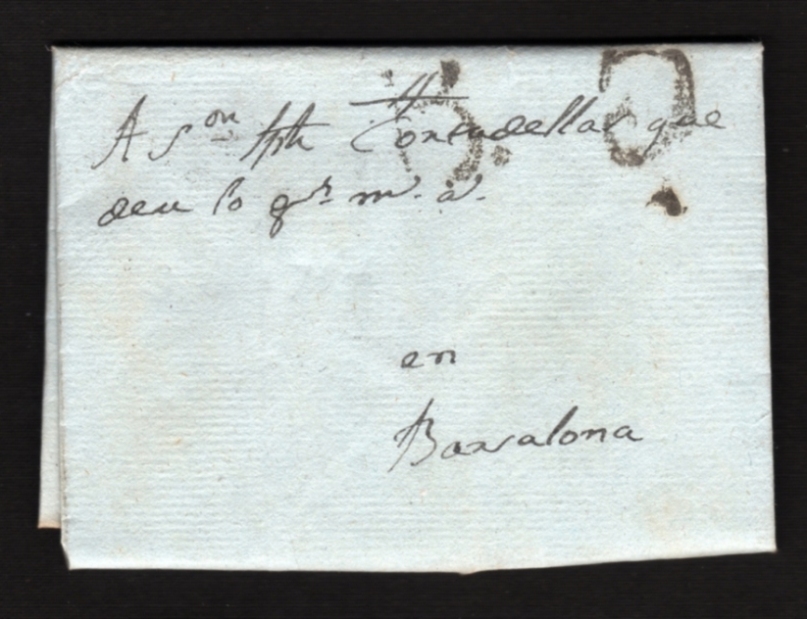 A Sᵒⁿ Jph Contadellas que
deu lo gᵈᵉ mˢ aˢ.
en
Barsalona